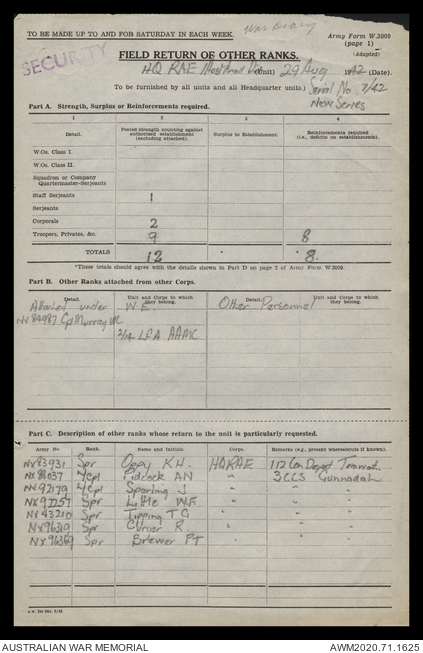 War Diary
TO BE MADE UP TO AND FOR SATURDAY IN EACH WEEK.
Army Form W.3009
(page 1)
(Adapted)
SECURITY
FIELD RETURN OF OTHER RANKS.
HQ RAE (Unit) 29 Aug 1942 (Date).
To be furnished by all units and all Headquarter units.)
Serial No. 7/42
New Series
Part A. Strength, Surplus or Reinforcements required.
1 2 3 4
Detail. Posted strength counting against authorised establishment (excluding attached). Surplus to Establishment. Reinforcements required (i.e., deficits on establishment).
W.Os. Class I.
W.Os. Class II.
Squadron or Company Quartermaster-Serjeants
Staff Serjeants 1
Serjeants
Corporals 2
Troopers, Privates, &c. 9 8
TOTALS 12 * * 8
*These totals should agree with the details shown in Part D on page 2 of Army Form W.3009.
Part B. Other Ranks attached from other Corps.
Detail. Unit and Corps to which they belong. Detail. Unit and Corps to which they belong.
Attached under W.E. Other Personnel
NX84987 Cpl Murray
2/14 LFA AAMC
Part C. Description of other ranks whose return to the unit is particularly requested.
Army No. Rank. Name and Initials. Corps. Remarks (e.g., present whereabouts if known).
NX83931 Spr Oppy K H. HQRAE 112 Con Depot Tamworth
L/Cpl Pidcock AN " 3CCS Gunnadah
NX92179 L/Cpl Sparling J " "
NX97257 Spr Little W.F. " "
NX43210 Spr Tipping T G " "
NX96319 Spr R. " "
Spr Brewer P T " "